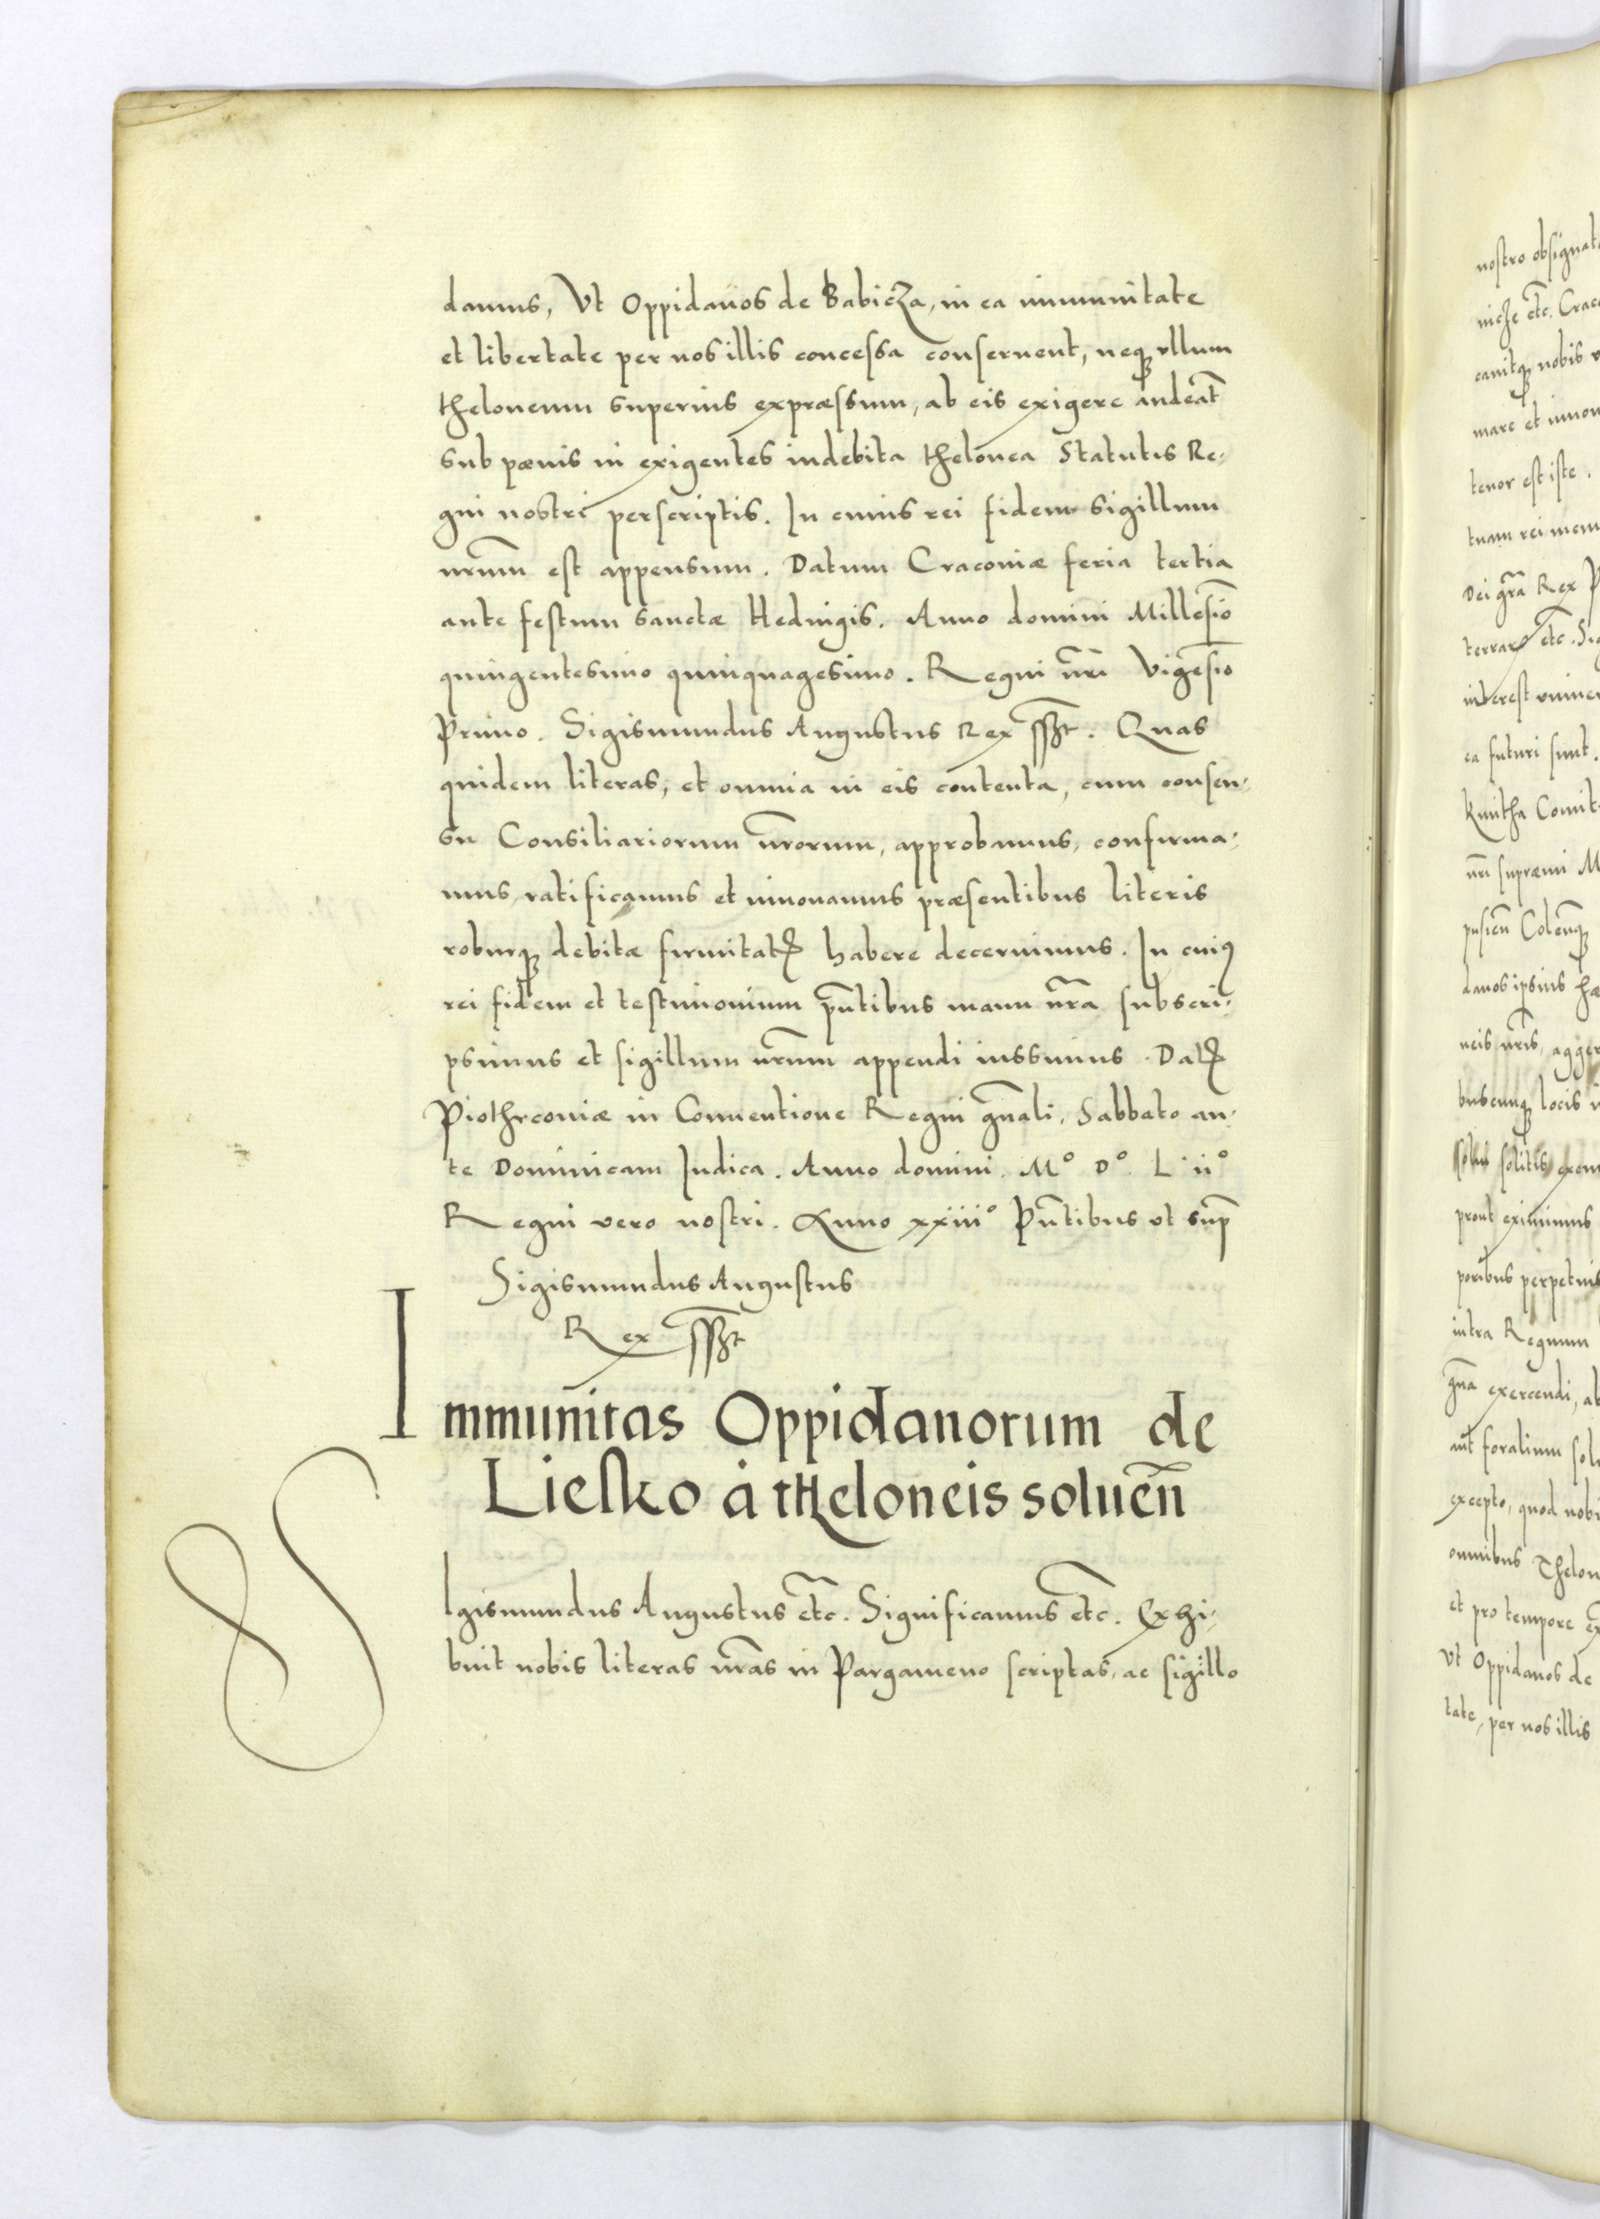 damus, Vt Oppidanos de Babicza, in ea immunitate
et libertate per nos illis concessa conseruent, neqꝫ vllum
theloneum superius expræssum, ab eis exigere audeāt
sub pœnis in exigentes indebita thelonea Statutis Re-
gni nostri perscriptis. In cuius rei fidem sigillum
nr̄um est appensum. Datum Cracouiæ feria tertia
ante festum sanctæ Heduigis. Anno domini Millesīo
quingentesimo quinquagesimo. Regni nr̄i Vigesīo
Primo. Sigismundus Augustus Rex sszt. Quas
quidem literas, et omnia in eis contenta, cum consen-
su Consiliariorum nr̄orum, approbamus, confirma-
mus, ratificamus et innouamus præsentibus literis
roburqꝫ debitæ firmitatꝭ habere decernimus. In cuiꝰ
rei fidem et testimonium pn̄tibus manu nr̄a subscri-
psimus et sigillum nr̄um appendi iussimus. Datꝭ
Piothrcouiæ in Conuentione Regni gn̄ali, Sabbato an-
te Dominicam Iudica. Anno domini. M° D° L ii°
Regni vero nostri. Anno xxiii° Pn̄tibus vt sup̄
Sigismundus Augustus
Rex sszt
Immunitas Oppidanorum de
Liesko à theloneis soluēn
SIgismundus Augustus etc̄. Significamus etc̄. Exhi-
buit nobis literas nr̄as in Pargameno scriptas, ac sigillo
nostro obsignat
etc̄. Crac
canitqꝫ nobis
mare et innou
tenor est iste.
tuam rei mem
Dei gr̄a Rex P
etc̄. Si
interest vniuer
ea futuri sunt.
Kmitha Comit
nr̄i supræmi M
danos ipsius hæ
neis nr̄is, agger
buscunqꝫ locis
solitis exem
prout eximimus
poribus perpetuis
intra Regnum
exercendi, ab
aut foralium sol
excepto, quod nobi
omnibus Thelon
et pro tempore
Vt Oppidanos de
tate, per nos illis